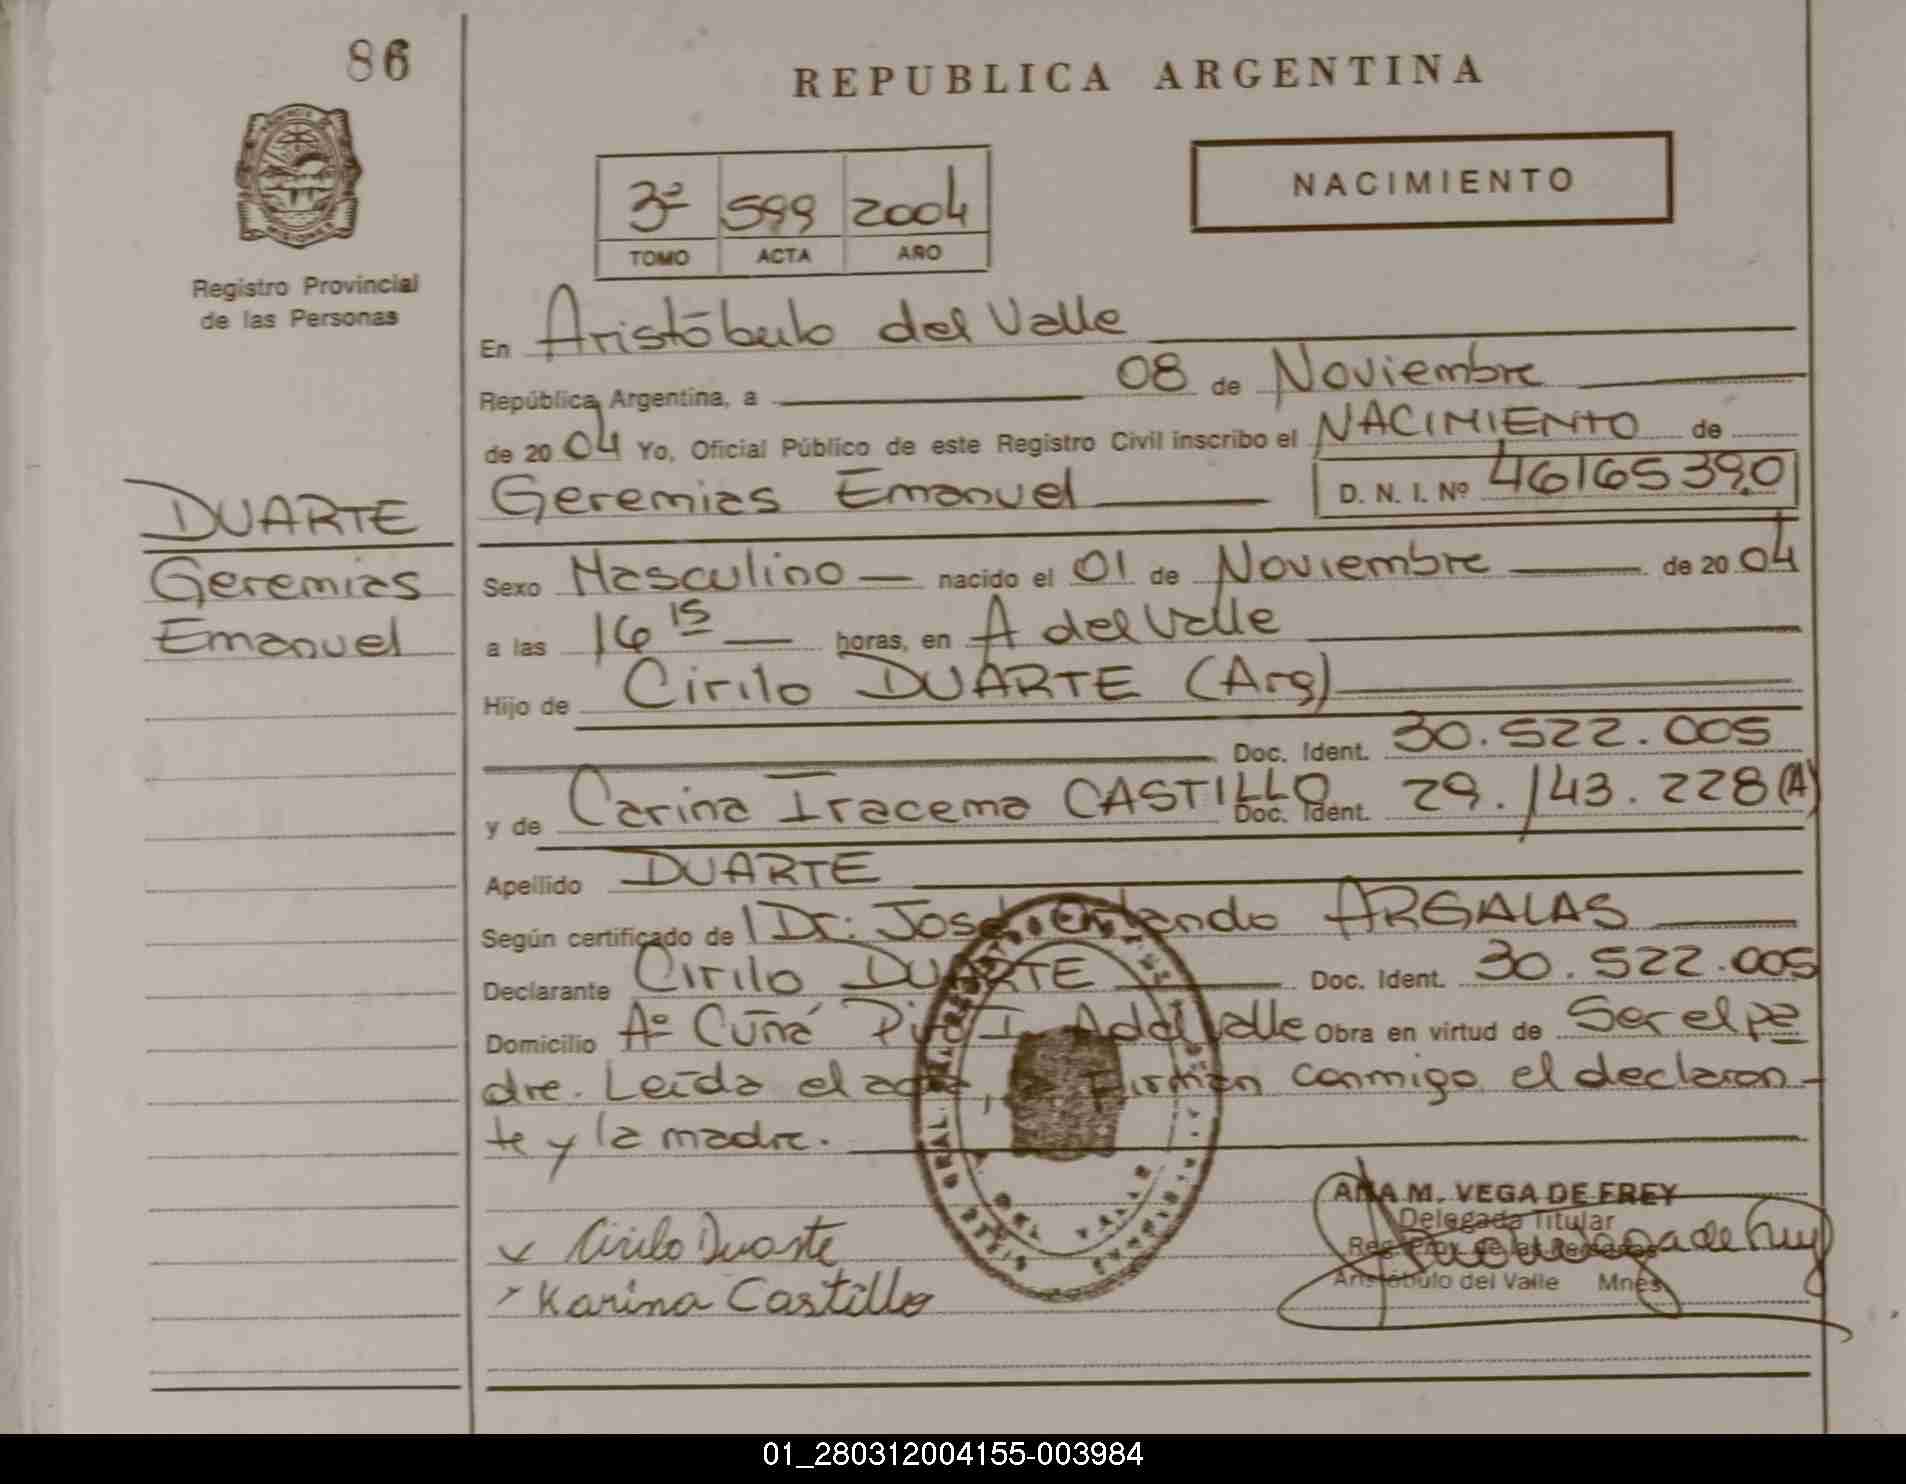 86
REPUBLICA ARGENTINA
NACIMIENTO
3º 599 2004
TOMO ACTA AÑO
Registro Provincial
de las Personas
En Aristóbulo del Valle
República Argentina, a 08 de Noviembre
de 2004 Yo, Oficial Público de este Registro Civil inscribo el NACIMIENTO de
Geremias Emanuel D. N. I. Nº 46165390
DUARTE
Geremias
Emanuel
Sexo Masculino nacido el 01 de Noviembre de 2004
a las 16 15 horas, en A del Valle
Hijo de Cirilo DUARTE (Arg)
Doc. Ident. 30.522.005
y de Carina Iracema CASTILLO Doc. Ident. 29.143.228 (A)
Apellido DUARTE
Según certificado de Dr: José Orlando ARGALAS
Declarante Cirilo DUARTE Doc. Ident. 30.522.005
Domicilio Aº Cuñá Pirú I A del Valle Obra en virtud de Ser el pa
dre. Leída el acta, la firman conmigo el declaran-
te y la madre.
ANA M. VEGA DE FREY
Delegada Titular
Aristóbulo del Valle Mnes
Cirilo Duarte
Karina Castillo
DEL VALLE
01_280312004155-003984